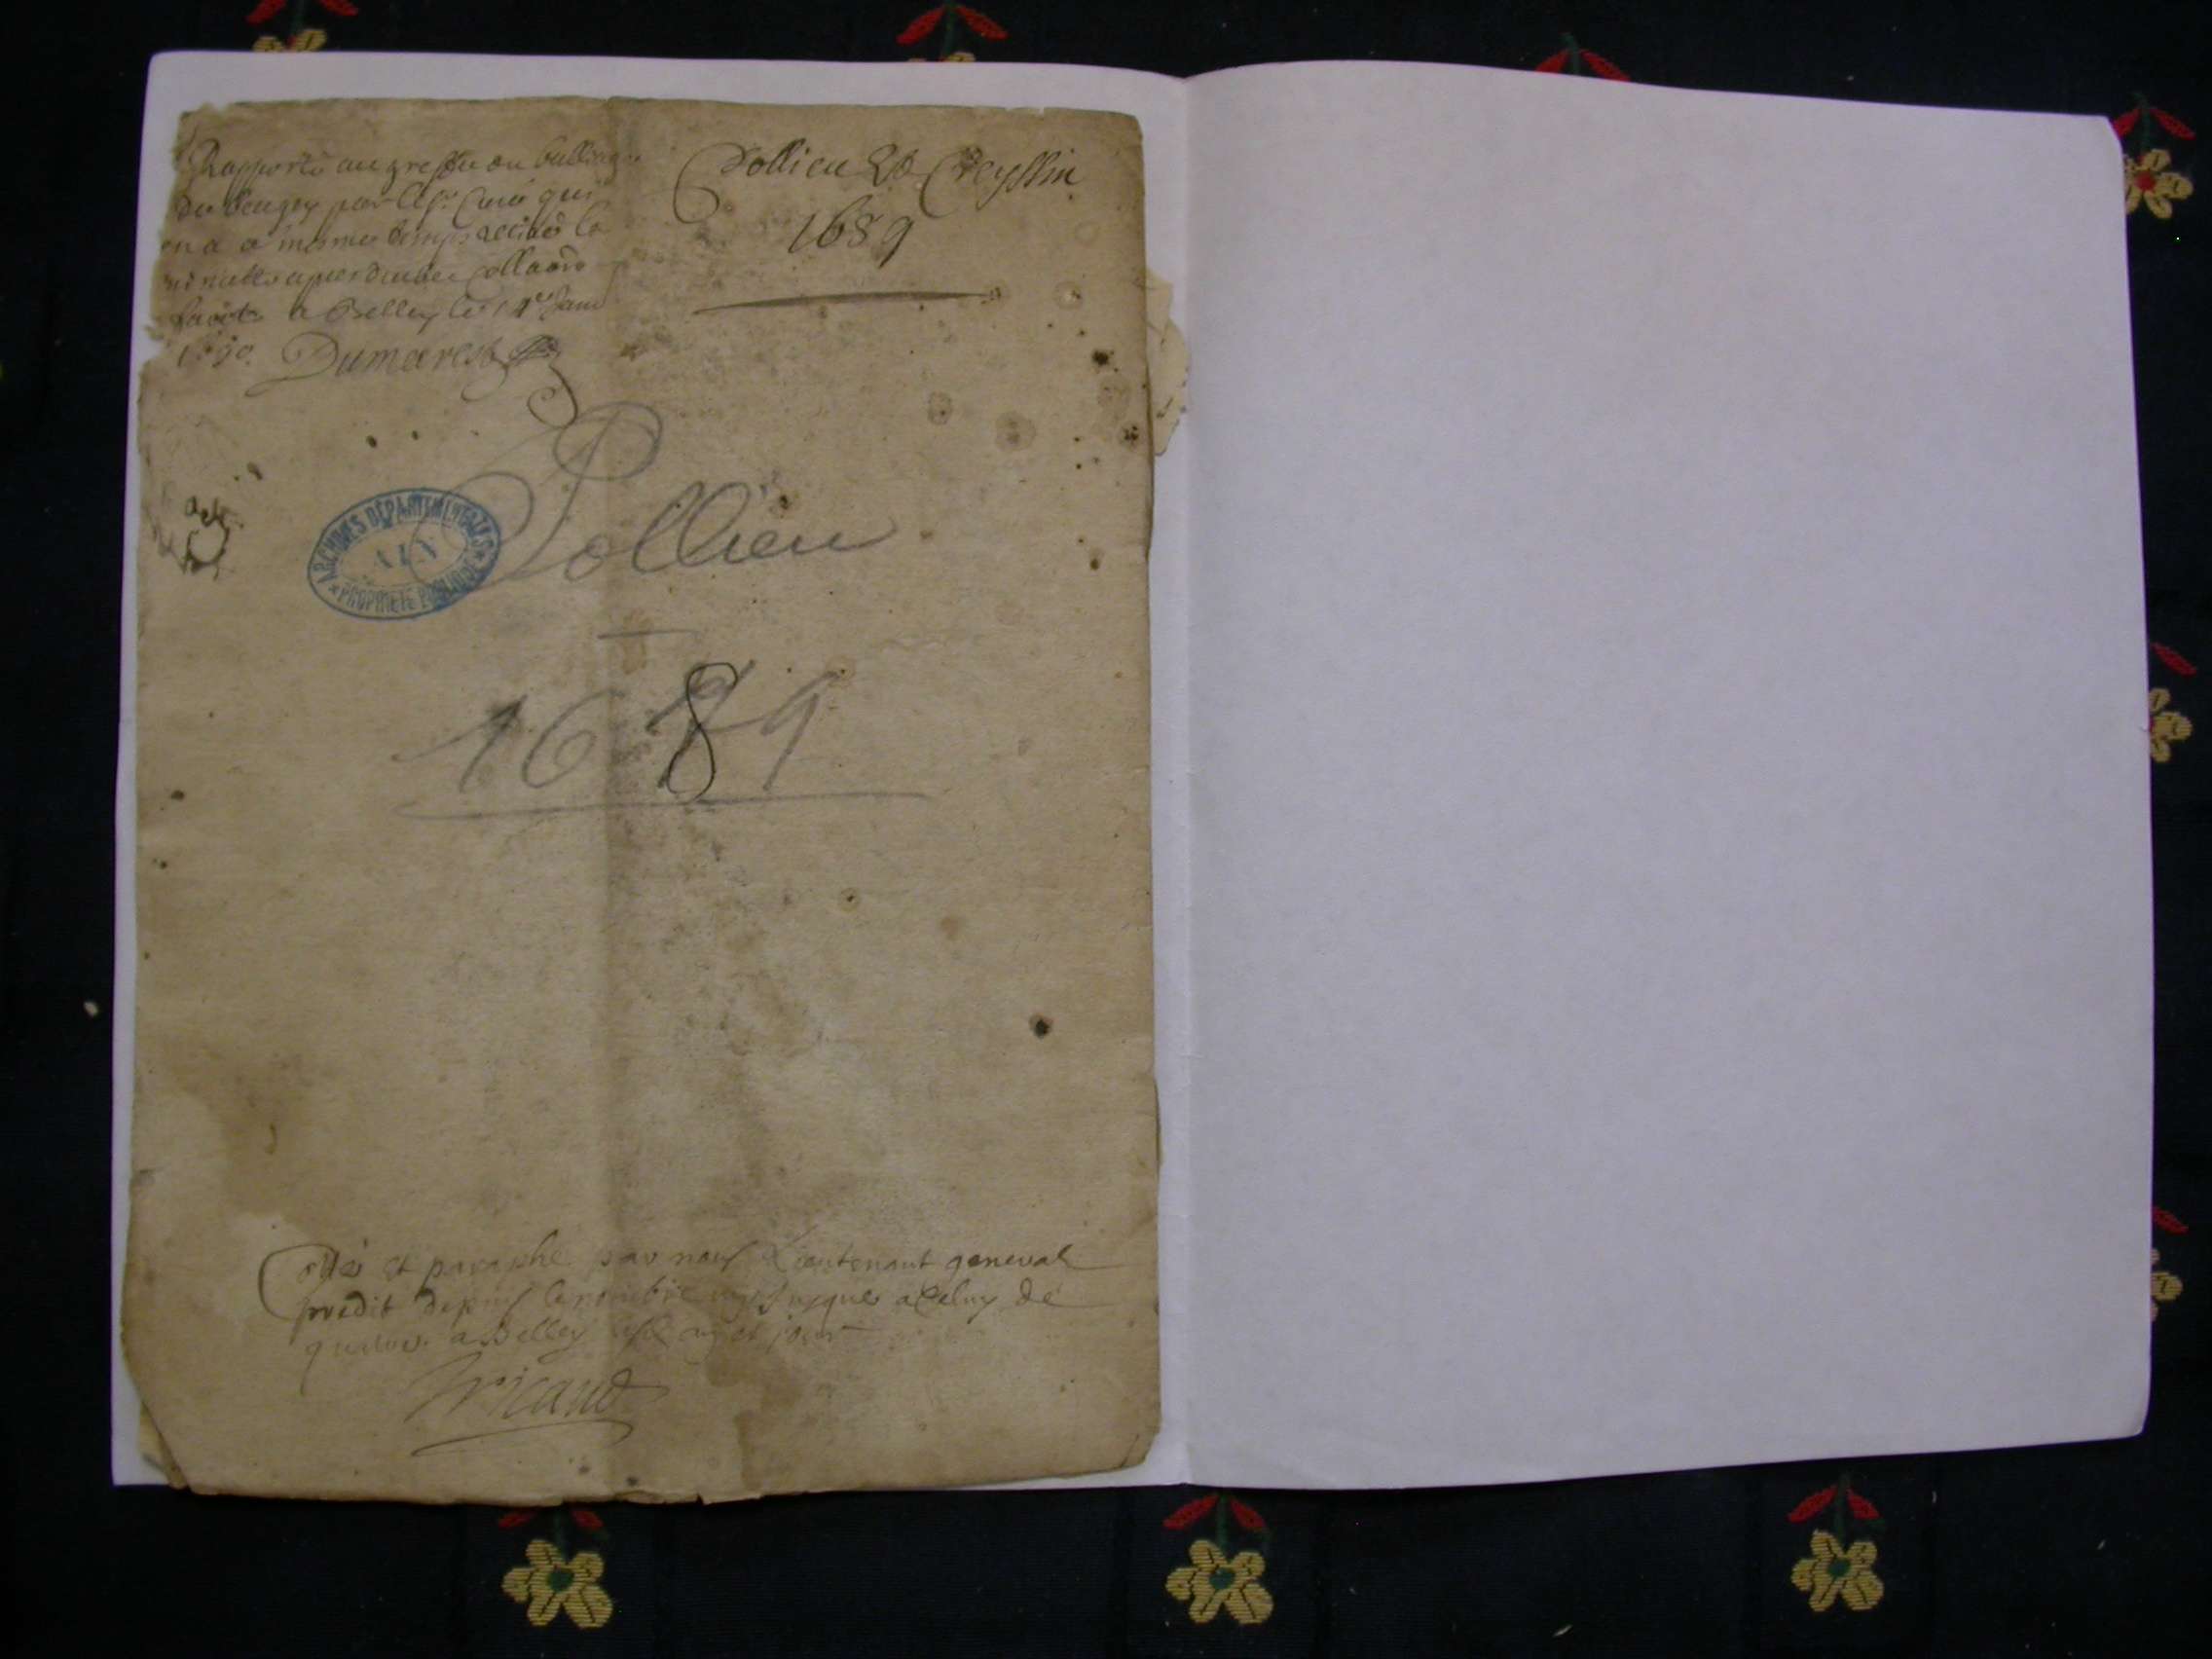 Rapporté au greffe du bailliage
du beugey par le Sr Curé qui
en a a mesme temps retiré la
minutte apres deube Collaon
faict a Belley le 14e Janv
1690. Dumarest
Pollieu & Creyssin
1689
Pollieu
1689
ARCHIVES DÉPARTEMENTALES
AIN
PROPRIÉTÉ PUBLIQUE
Cotté et paraphé par nous Lieutenant general
predit depuis le nombre jusques a Celuy de
a Belley an et jour
Tricaud